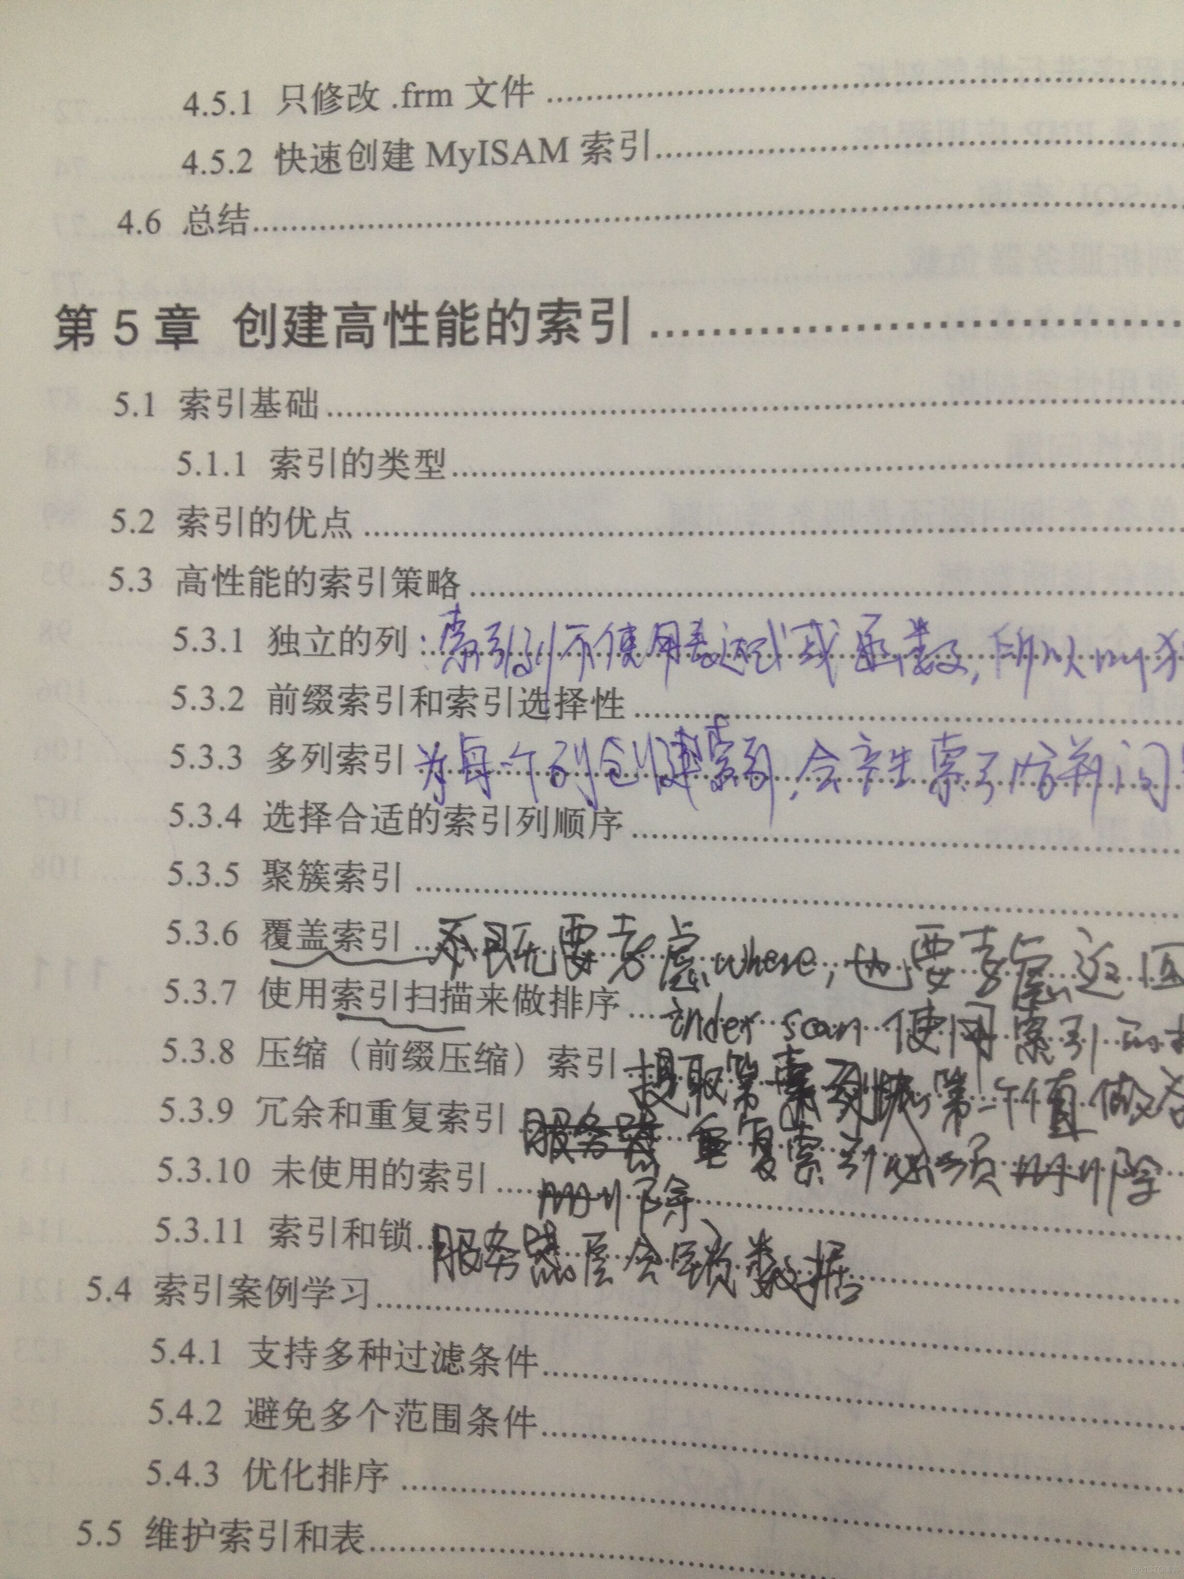 4.5.1 只修改 .frm 文件
4.5.2 快速创建 MyISAM 索引
4.6 总结
第 5 章 创建高性能的索引
5.1 索引基础
5.1.1 索引的类型
5.2 索引的优点
5.3 高性能的索引策略
5.3.1 独立的列：索引列不使用表达式或函数，所以叫
5.3.2 前缀索引和索引选择性
5.3.3 多列索引 为每个列创建索引，会产生索引合并问
5.3.4 选择合适的索引列顺序
5.3.5 聚簇索引
5.3.6 覆盖索引 要考虑where，也要考虑返回
5.3.7 使用索引扫描来做排序 index scan 使用索引
5.3.8 压缩（前缀压缩）索引 提取 索引块 第一个值 做
5.3.9 冗余和重复索引 服务器 重复索引必须删除
5.3.10 未使用的索引 删除
5.3.11 索引和锁 服务器层会锁数据
5.4 索引案例学习
5.4.1 支持多种过滤条件
5.4.2 避免多个范围条件
5.4.3 优化排序
5.5 维护索引和表